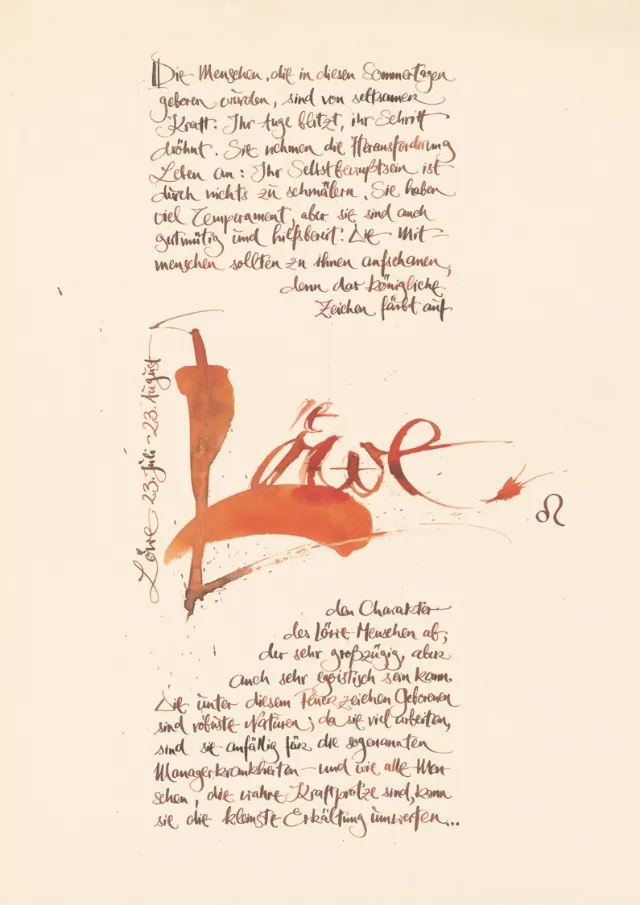 Die Menschen, die in diesen Sommertagen
geboren wurden, sind von seltsamer
Kraft: Ihr Auge blitzt, ihr Schritt
dröhnt. Sie nehmen die Herausforderung
Leben an: Ihr Selbstbewußtsein ist
durch nichts zu schmälern. Sie haben
viel Temperament, aber sie sind auch
gutmütig und hilfsbereit. Die Mit-
menschen sollten zu ihnen aufschauen,
denn das königliche
Zeichen färbt auf
Löwe 23. Juli - 23. August
Löwe
♌
den Charakter
des Löwe-Menschen ab,
der sehr großzügig, aber
auch sehr egoistisch sein kann.
Die unter diesem Feuerzeichen Geborenen
sind robuste Naturen; da sie viel arbeiten,
sind sie anfällig für die sogenannten
Managerkrankheiten - und wie alle Men-
schen, die wahre Kraftprotze sind, kann
sie die kleinste Erkältung umwerfen...